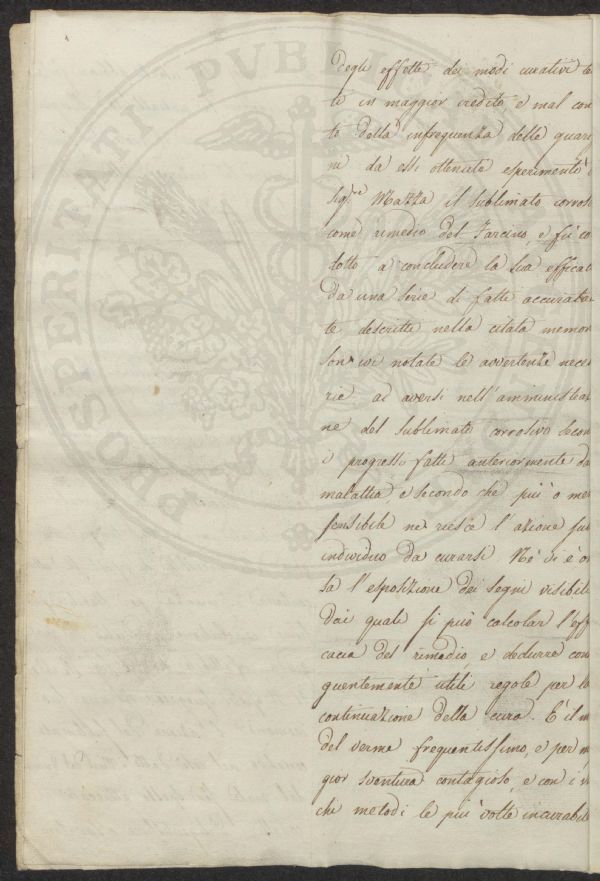 PROSPERITATI PUBLICAE
degli effetti dei modi curativi te
ti in maggior credito e mal con
to della infrequenza delle guari
ni da essi ottenute esperimentò
Sig.re Mazza il sublimato corros
come rimedio del Farcino, e fù co
dotto a concludere la sua efficac
da una serie di fatti accurata
te descritte nella citata memor
Son ivi notate le avvertenze neces
rie ad aversi nell'amministraz
ne del sublimato corrosivo secon
i progressi fatti anteriormente da
malattia e secondo che più o me
sensibile ne riesce l'azione sul
individuo da curarsi Nè vi è o
sa l'esposizione dei segni visibil
dai quali si può calcolar l'eff
cacia del rimedio, e dedurre con
guentemente utili regole per la
continuazione della cura. E' il m
del verme frequentissimo, e per m
gior sventura contagioso, e con i
chi metodi le più volte incurabil